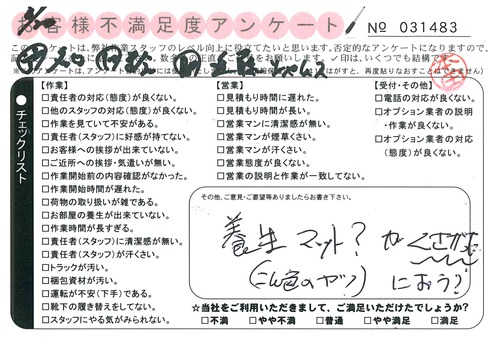 お客様不満足度アンケート
№ 031483
このアンケートは、弊社作業スタッフのレベル向上に役立てたいと思います。否定的なアンケートになりますので、
チェックリスト
【作業】
□責任者の対応(態度)が良くない。
□他のスタッフの対応(態度)が良くない。
□作業を見ていて不安がある。
□責任者(スタッフ)に好感が持てない。
□お客様への挨拶が出来ていない。
□ご近所への挨拶・気遣いが無い。
□作業開始前の内容確認がなかった。
□作業開始時間が遅れた。
□荷物の取り扱いが雑である。
□お部屋の養生が出来ていない。
□作業時間が長すぎる。
□責任者(スタッフ)に清潔感が無い。
□責任者(スタッフ)が汗くさい。
□トラックが汚い。
□梱包資材が汚い。
□運転が不安(下手)である。
□靴下の履き替えをしてない。
□スタッフにやる気がみられない。
【営業】
□見積もり時間に遅れた。
□見積もり時間が長い。
□営業マンに清潔感が無い。
□営業マンが煙草くさい。
□営業マンが汗くさい。
□営業態度が良くない。
□営業の説明と作業が一致していない。
【受付・その他】
□電話の対応が良くない。
□オプション業者の説明
・作業が良くない。
□オプション業者の対応
(態度)が良くない。
その他、ご意見・ご要望等ありましたらお書き下さい。
養生マット？がくさかった
(こん色のヤツ)におう？
☆当社をご利用いただきまして、ご満足いただけたでしょうか？
□不満 □やや不満 □普通 □やや満足 □満足